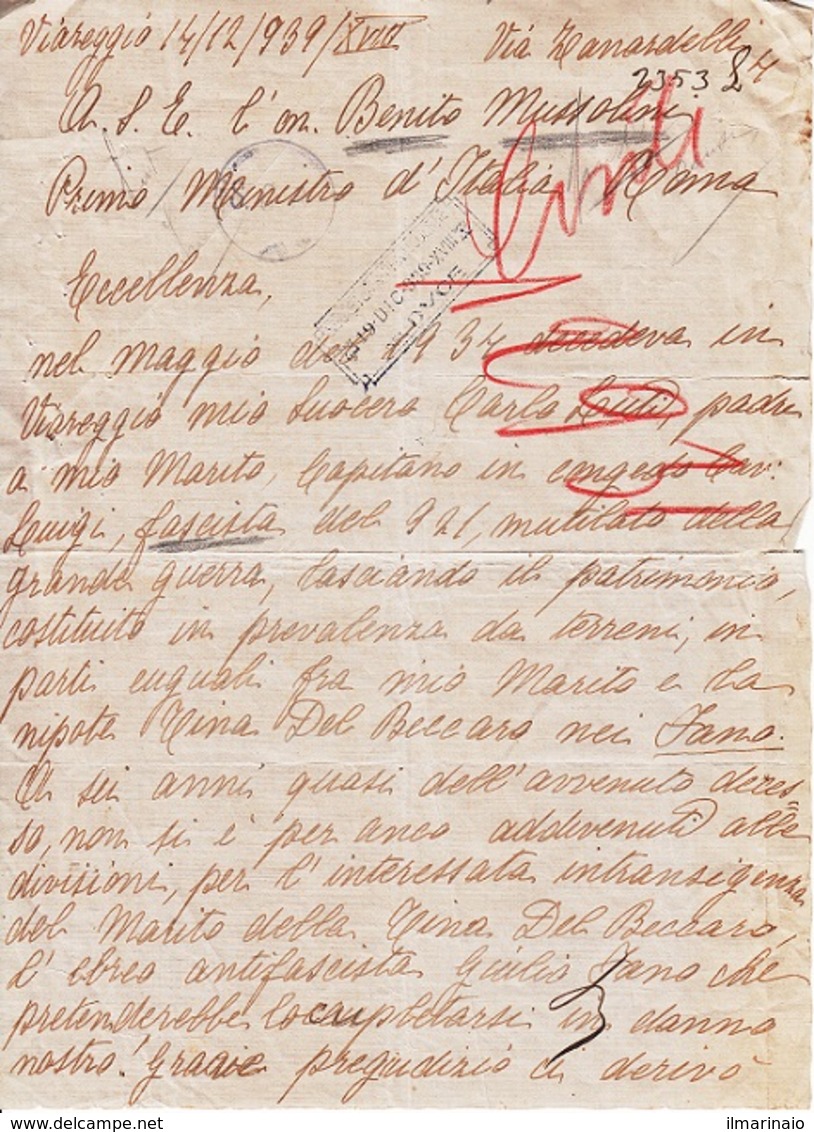 Viareggio 14/12/939/XVIII Via Zanardelli 4
2353
A. S. E. l'on. Benito Mussolini
Primo Ministro d'Italia Roma
19 DIC. 939-XVIII
DVCE
Eccellenza,
nel maggio del 1934 decedeva in
Viareggio mio suocero Carlo padre
a mio Marito, Capitano in congedo Cav.
Luigi, fascista del 921, mutilato della
grande guerra, lasciando il patrimonio,
costituito in prevalenza da terreni, in
parti euguali fra mio Marito e la
nipote Tina Del Beccaro nei Fano.
A sei anni quasi dell'avvenuto deces=
so, non si è per anco addivenuti alle
divisioni, per l'interessata intransigenza
del Marito della Tina Del Beccaro,
l'ebreo antifascista Giulio Fano che
pretenderebbe locupletarsi in danno
nostro! Grave pregudizio ci derivò
ilmarinaio